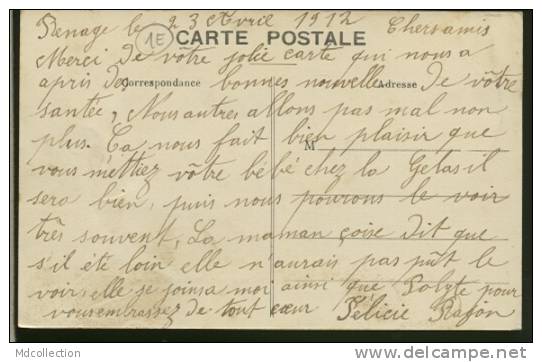 Renage le 23 Avril 1912
1E
CARTE POSTALE
Chers amis
Merci de vôtre jolie carte qui nous a
apris de bonnes nouvelle De vôtre
Correspondance
Adresse
santée, Nous autres allons pas mal non
plus. Ça nous fait bien plaisir que
M
vous mettiez vôtre bébé chez la Gelas il
sera bien, puis nous pourons le voir
três souvent, La maman çoise dit que
s'il été loin elle n'aurais pas pût le
voir elle se joins a moi ainsi que Polyte pour
vous embrassez de tout cœur Félicie Rafon
Mdcollection
www.delcampe.net